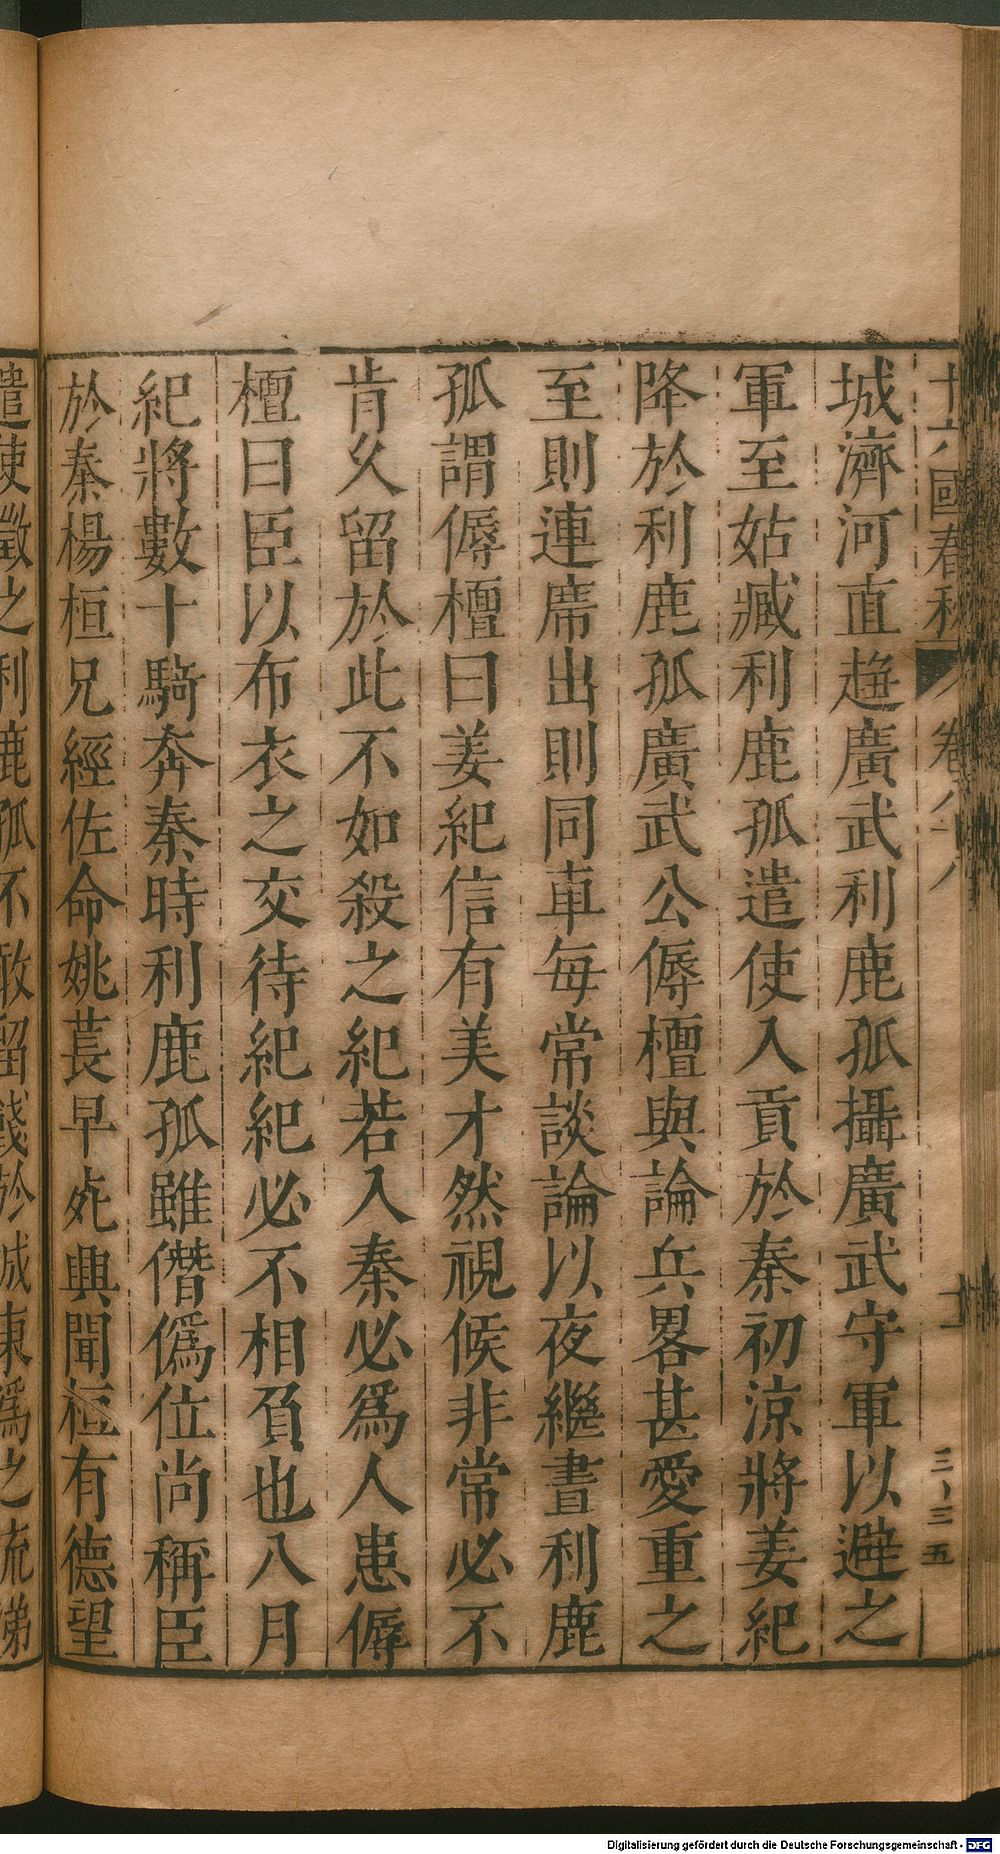 十六國春秋 卷八十八
三〡三五
城濟河直趨廣武利鹿孤攝廣武守軍以避之
軍至姑臧利鹿孤遣使入貢於秦初涼將姜紀
降於利鹿孤廣武公傉檀與論兵畧甚愛重之
至則連席出則同車每常談論以夜繼晝利鹿
孤謂傉檀曰姜紀信有美才然視候非常必不
肯久留於此不如殺之紀若入秦必爲人患傉
檀曰臣以布衣之交待紀紀必不相負也八月
紀將數十騎奔秦時利鹿孤雖僭僞位尚稱臣
於秦楊桓兄經佐命姚萇早死興聞桓有德望
遣使徵之利鹿孤不敢留餞於城東爲之流涕
Digitalisierung gefördert durch die Deutsche Forschungsgemeinschaft - DFG